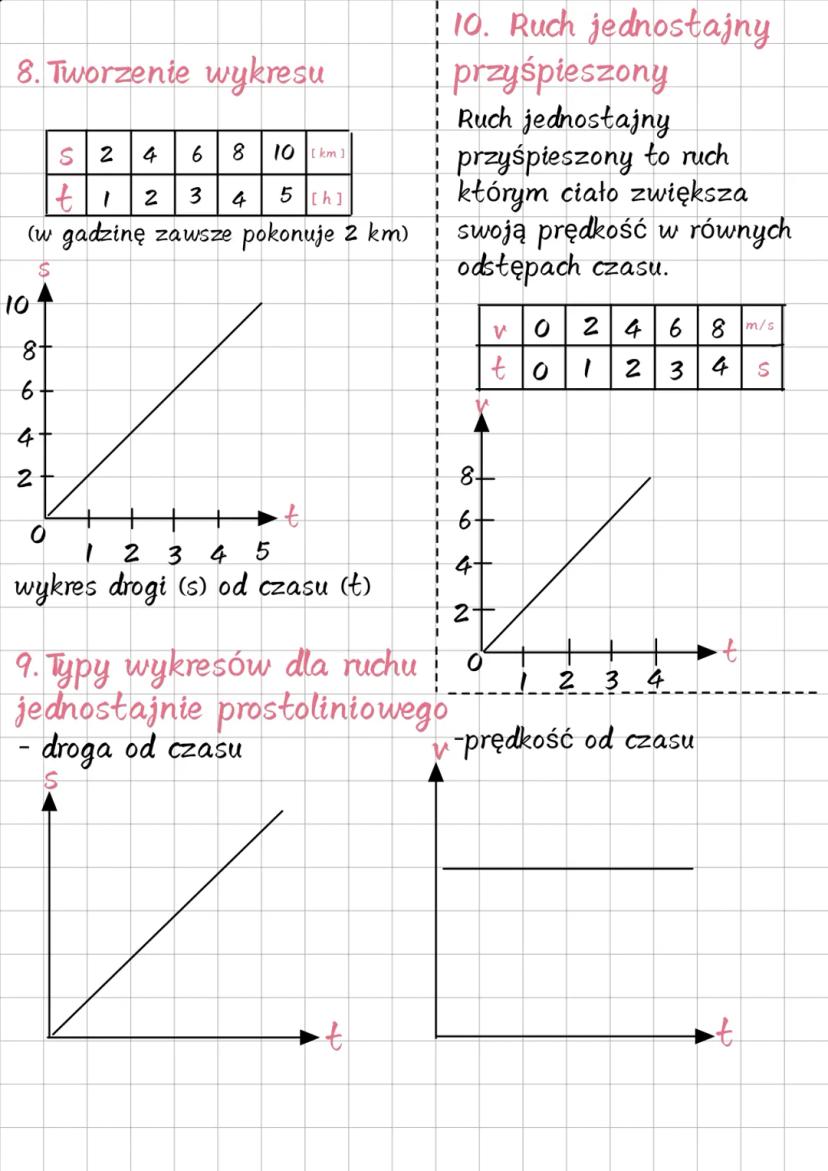 8. Tworzenie wykresu
s 2 4 6 8 10 [km]
t 1 2 3 4 5 [h]
(w gadzinę zawsze pokonuje 2 km)
s
10
8
6
4
2
0
1 2 3 4 5
t
wykres drogi (s) od czasu (t)
9. Typy wykresów dla ruchu
jednostajnie prostoliniowego
- droga od czasu
s
t
-prędkość od czasu
v
t
10. Ruch jednostajny
przyśpieszony
Ruch jednostajny
przyśpieszony to ruch
którym ciało zwiększa
swoją prędkość w równych
odstępach czasu.
v 0 2 4 6 8 m/s
t 0 1 2 3 4 s
v
8
6
4
2
0
1 2 3 4
t